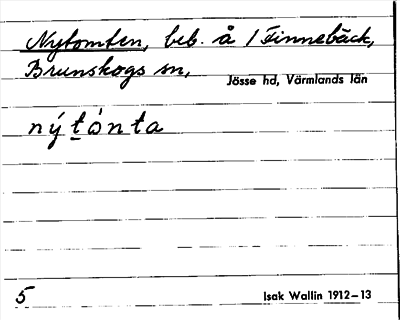 Nytomten, beb. å 1 Finnebäck,
Brunskogs sn,
Jösse hd, Värmlands län
nýtònta
5
Isak Wallin 1912-13